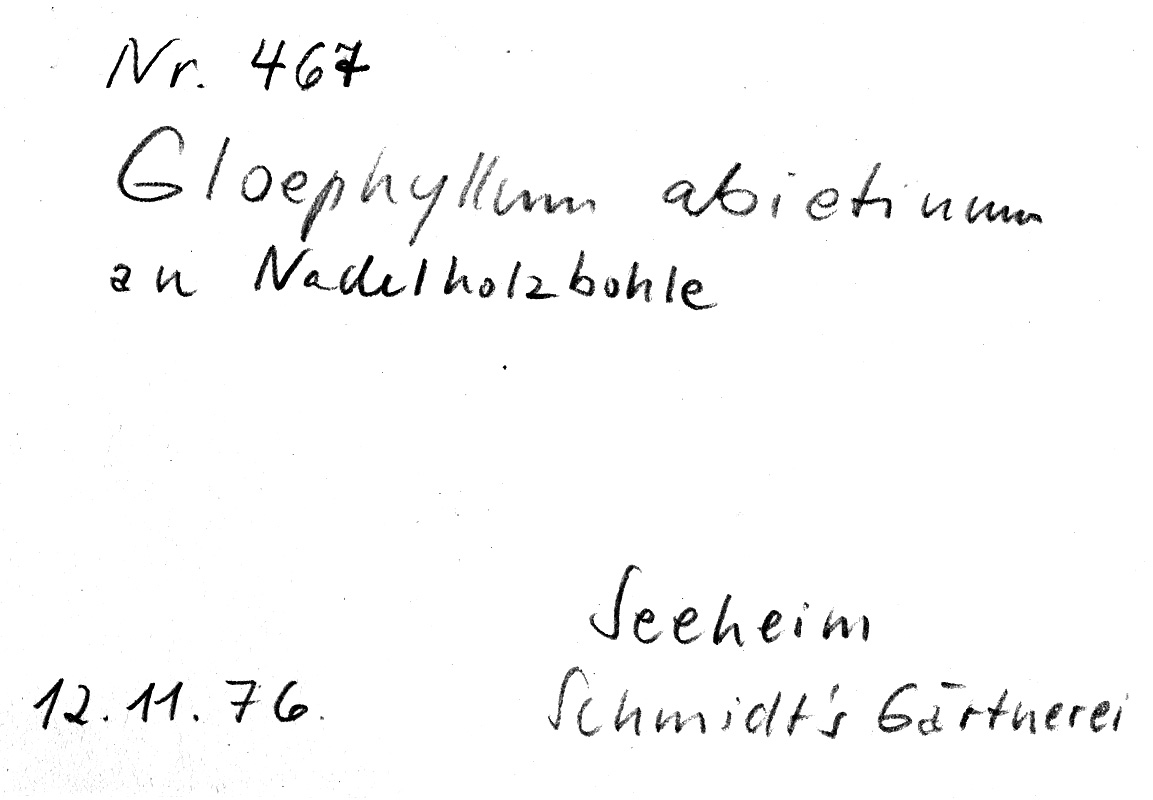 Nr. 467
Gloephyllum abietinum
an Nadelholzbohle
Seeheim
12.11.76. Schmidt's Gärtnerei